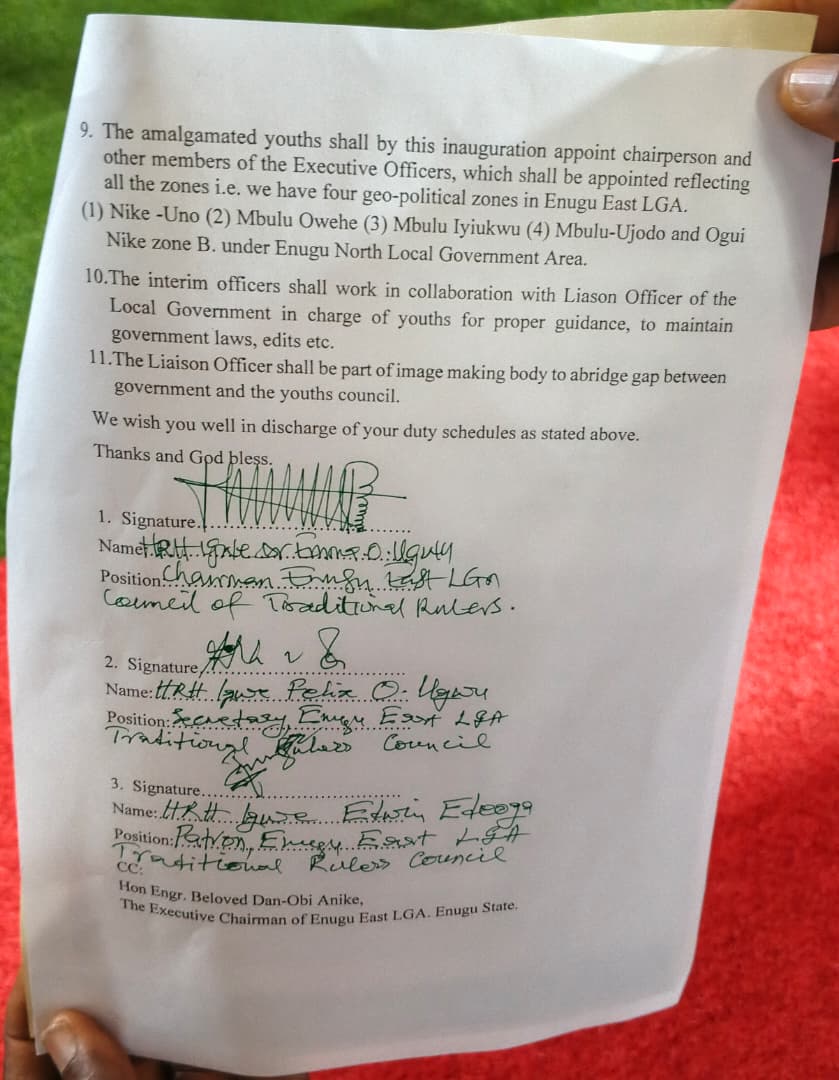 9. The amalgamated youths shall by this inauguration appoint chairperson and
other members of the Executive Officers, which shall be appointed reflecting
all the zones i.e. we have four geo-political zones in Enugu East LGA.
(1) Nike -Uno (2) Mbulu Owehe (3) Mbulu Iyiukwu (4) Mbulu-Ujodo and Ogui
Nike zone B. under Enugu North Local Government Area.
10.The interim officers shall work in collaboration with Liason Officer of the
Local Government in charge of youths for proper guidance, to maintain
government laws, edits etc.
11.The Liaison Officer shall be part of image making body to abridge gap between
government and the youths council.
We wish you well in discharge of your duty schedules as stated above.
Thanks and God bless.
1. Signature
Name: HRH Igwe Dr. O. Ugwu
Position: Chairman Enugu East LGA
Council of Traditional Rulers.
2. Signature
Name: HRH Igwe Felix O. Ugwu
Position: Secretary, Enugu East LGA
Traditional Rulers Council
3. Signature
Name: HRH Igwe Edwin
Position: Patron, Enugu East LGA
Traditional Rulers Council
CC:
Hon Engr. Beloved Dan-Obi Anike,
The Executive Chairman of Enugu East LGA. Enugu State.